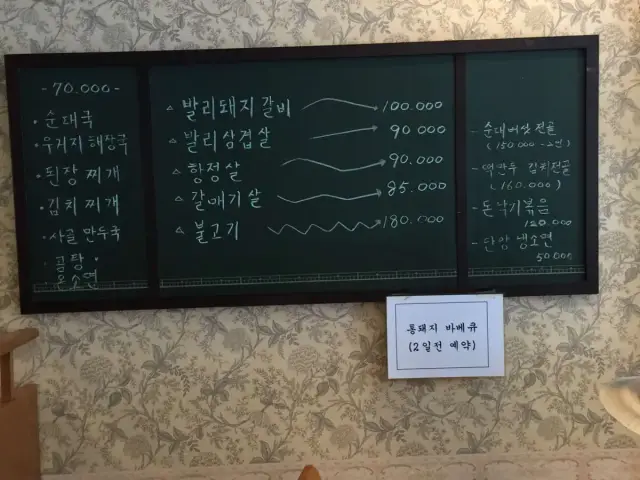 -70.000-
• 순대국
• 우거지 해장국
• 된장 찌개
• 김치 찌개
• 사골 만두국
• 곰탕 •
온소면
△ 발리돼지 갈비 100.000
△ 발리삼겹살 90.000
△ 항정살 90.000
△ 갈매기살 85.000
△ 불고기 180.000
- 순대버섯전골
(150.000 -2인)
김치전골
(160.000)
- 돈낙기볶음
120.000
- 단양 냉소면
50.000
통돼지 바베큐
(2일전 예약)